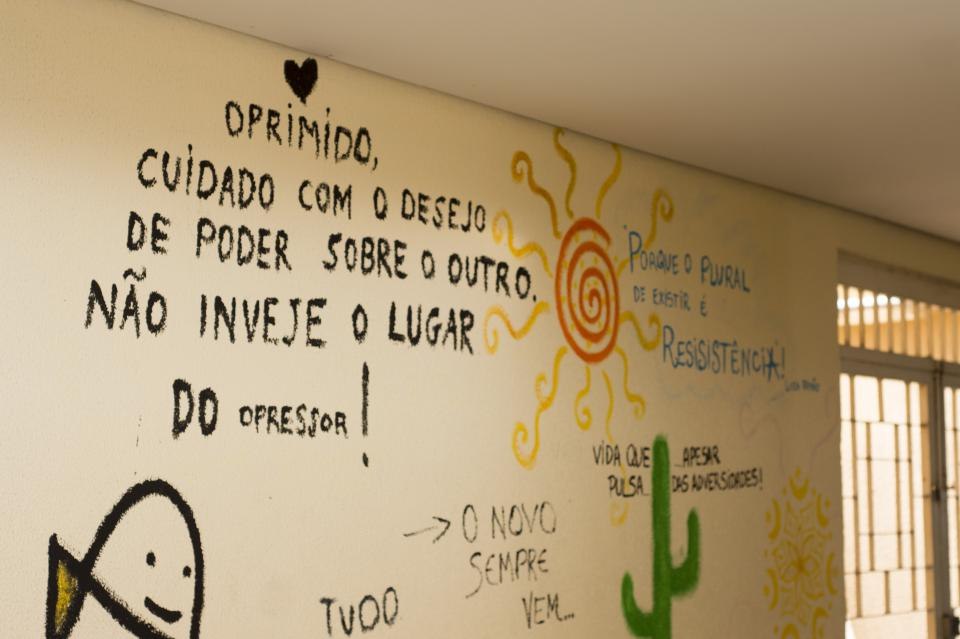 OPRIMIDO,
CUIDADO COM O DESEJO
DE PODER SOBRE O OUTRO.
NÃO INVEJE O LUGAR
DO OPRESSOR!
"PORQUE O PLURAL
DE EXISTIR É
RESISISTÊNCIA!
VIDA QUE ...APESAR
PULSA... DAS ADVERSIDADES!
→ O NOVO
SEMPRE
VEM...
TUDO